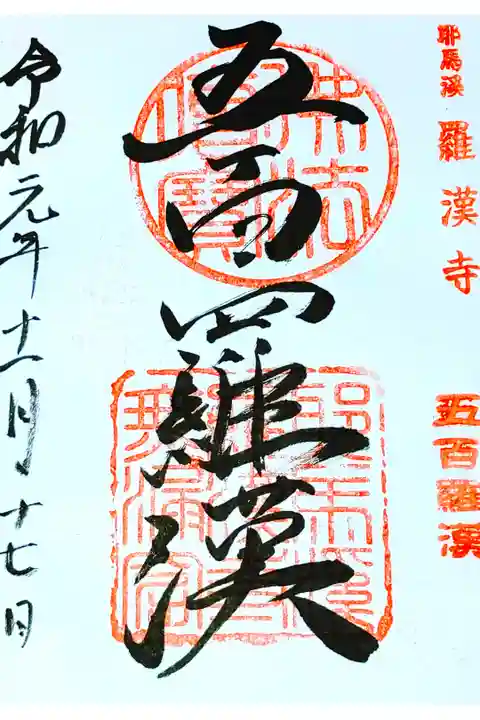 耶馬溪 羅漢寺
五百羅漢
佛法僧寶
五百羅漢
令和元年十一月十七日